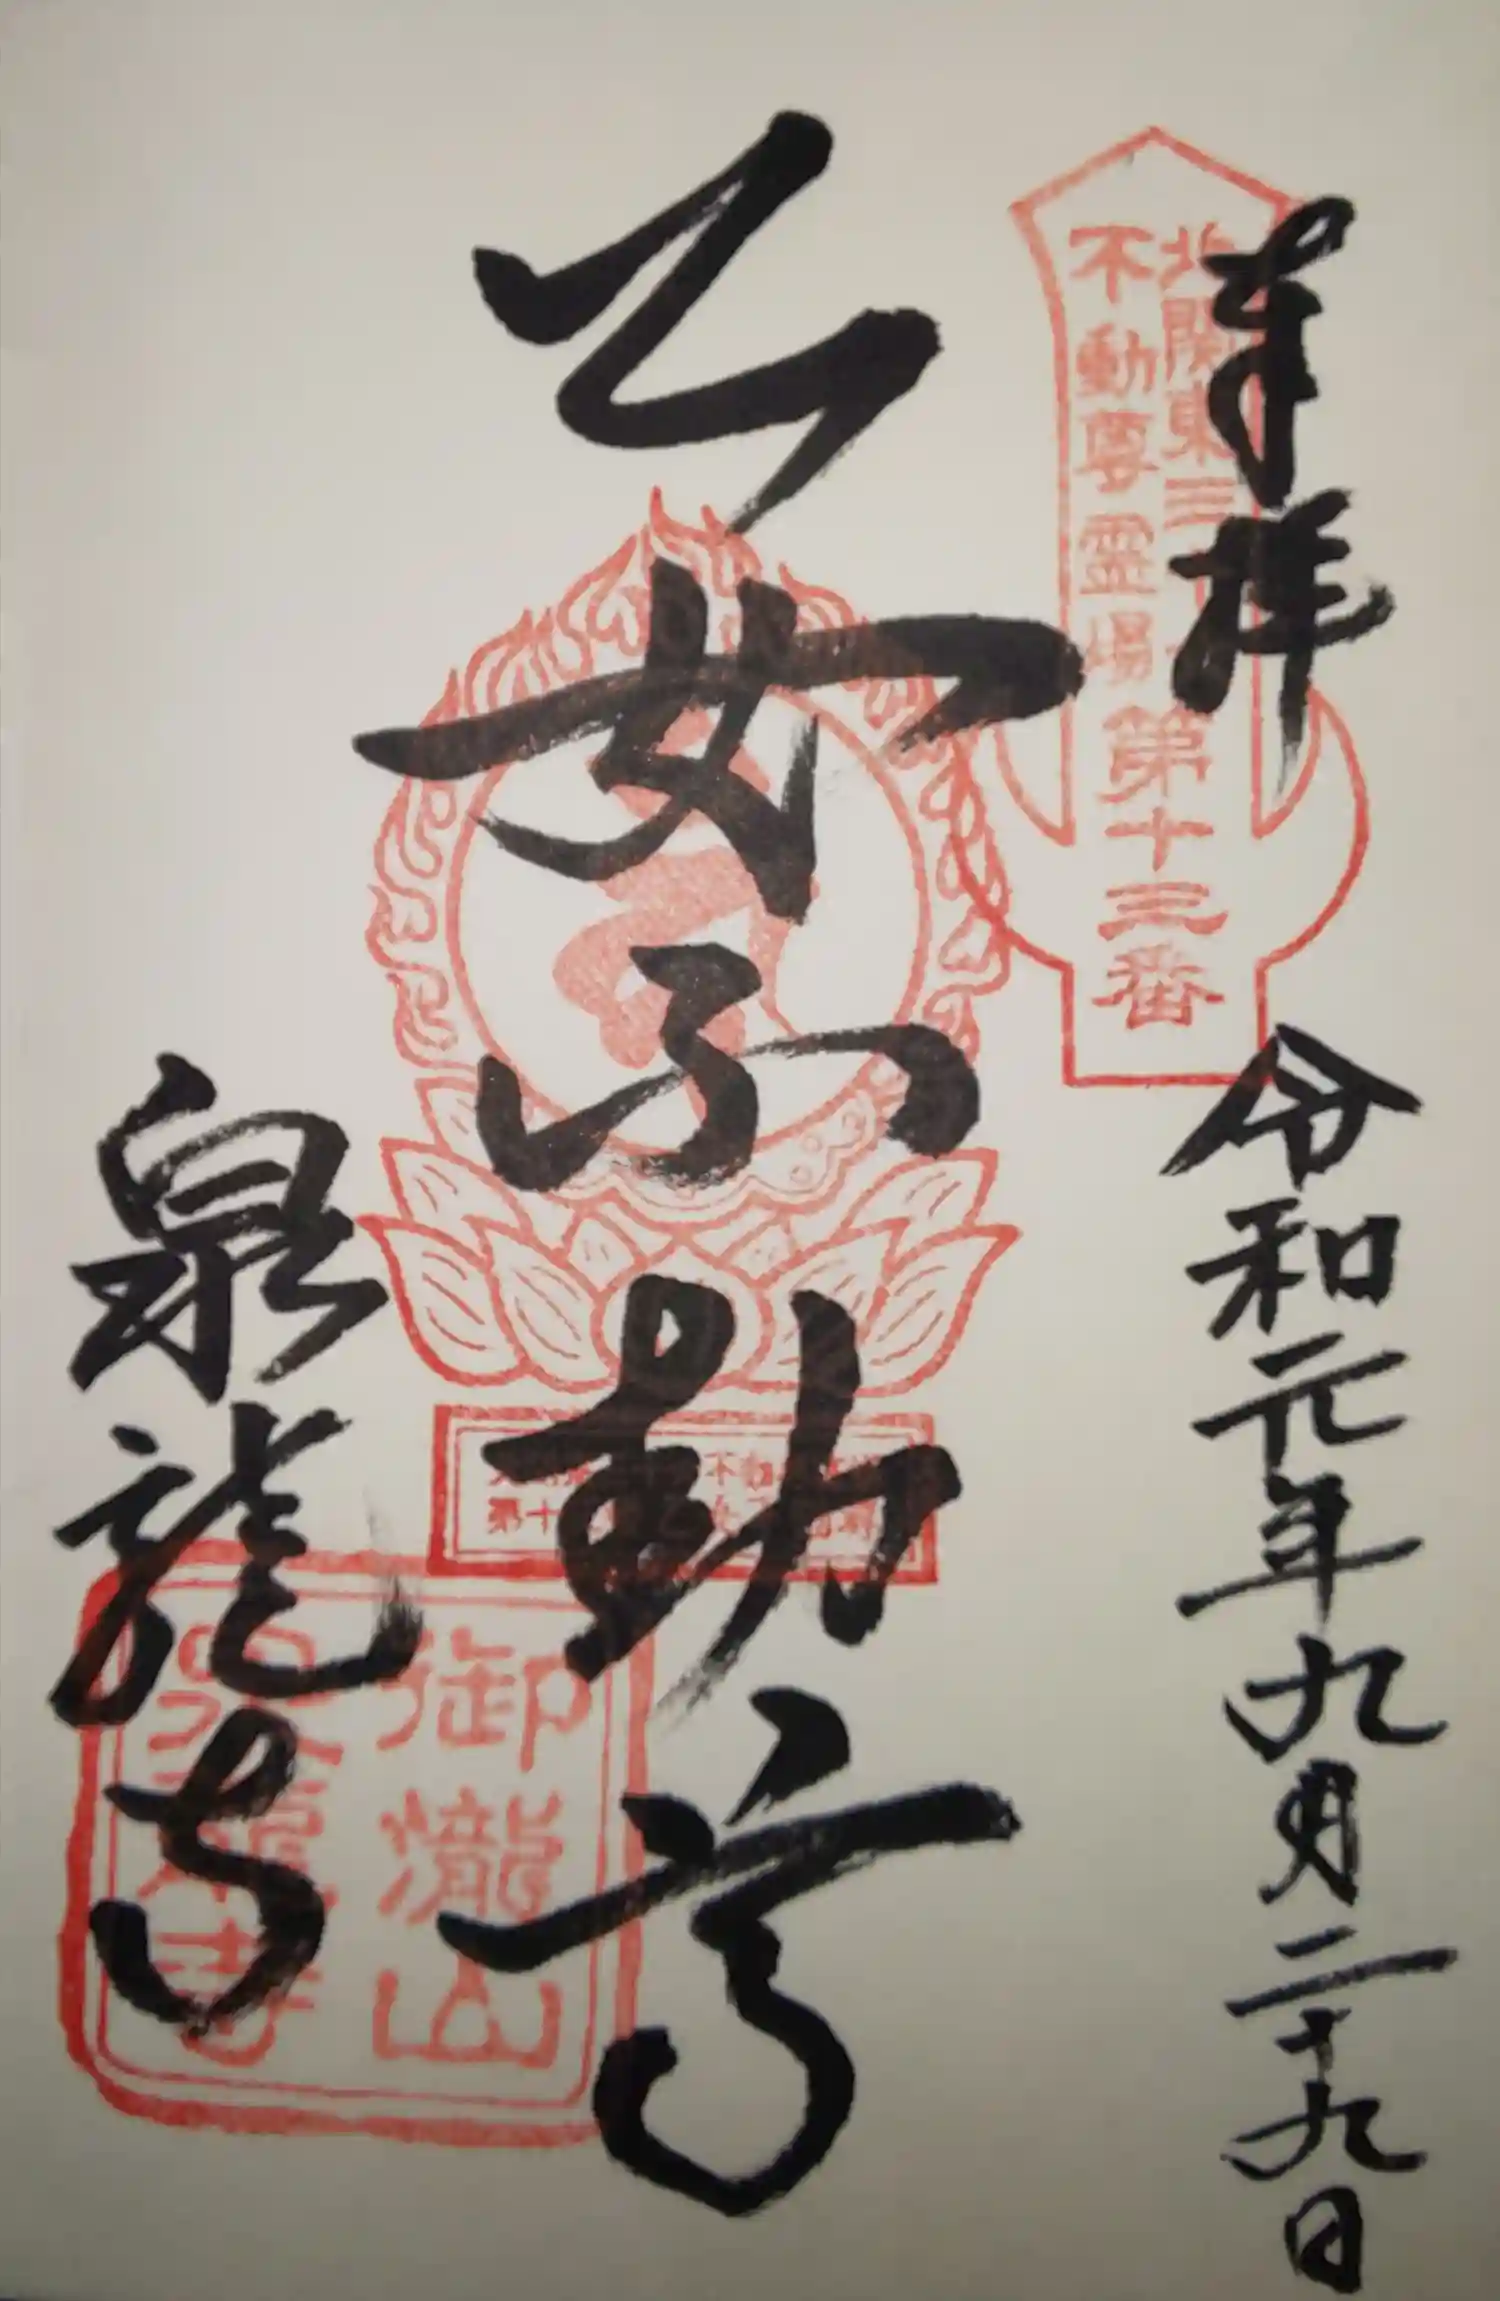 奉拝
令和元年九月二十九日
北関東三十六
不動尊霊場
第十三番
乙女不動尊
泉龍寺
御瀧山
泉龍寺